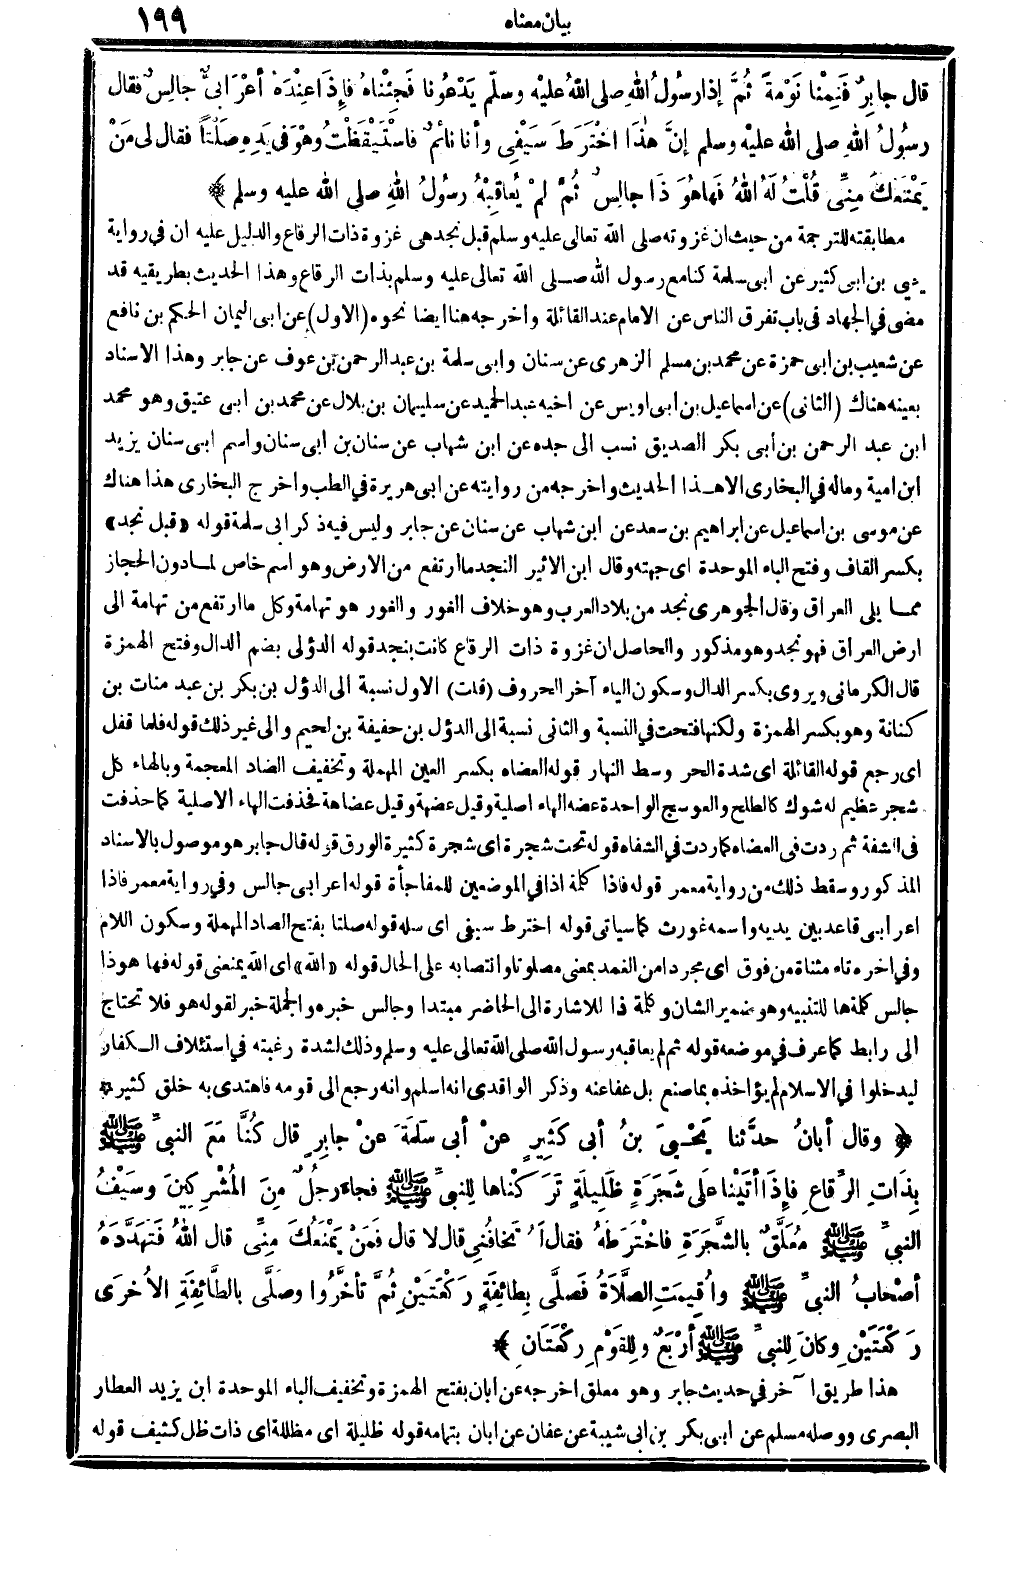 بيان معناه ١٩٩
قال جابِرٌ فَنِمْنا نَوْمَةً ثُمَّ إذا رسُولُ اللهِ صلى اللهُ عليْه وسلّم يَدْعُونا فَجِئْناهُ فإِذَا عِنْدَهُ أعْرَابىٌّ جالِسٌ فقال
رسُولُ اللهِ صلى الله عليْه وسلم إنَّ هٰذَا اخْتَرَطَ سَيْفِى وأنا نائمٌ فاسْتَيْقَظْتُ وهْوَ فى يَدِهِ صَلْتاً فقال لى مَنْ
يَمْنَعُكَ مِنِّى قُلْتُ لَهُ اللهُ فَهاهُوَ ذَا جالِسٌ ثُمَّ لمْ يُعاقِبْهُ رسُولُ اللهِ صلى الله عليه وسلم ﴾
مطابقته للترجمة من حيث ان غزوته صلى الله تعالى عليه وسلم قبل نجد هى غزوة ذات الرقاع والدليل عليه ان فى رواية
يحيى بن ابى كثير عن ابى سلمة كنا مع رسول الله صلى الله تعالى عليه وسلم بذات الرقاع وهذا الحديث بطريقيه قد
مضى فى الجهاد فى باب تفرق الناس عن الامام عند القائلة واخرجه هنا ايضا نحوه (الاول) عن ابى اليمان الحكم بن نافع
عن شعيب بن ابى حمزة عن محمد بن مسلم الزهرى عن سنان وابى سلمة بن عبد الرحمن بن عوف عن جابر وهذا الاسناد
بعينه هناك (الثانى) عن اسماعيل بن ابى اويس عن اخيه عبد الحميد عن سليمان بن بلال عن محمد بن ابى عتيق وهو محمد
ابن عبد الرحمن بن أبى بكر الصديق نسب الى جده عن ابن شهاب عن سنان بن ابى سنان واسم ابى سنان يزيد
ابن امية وماله فى البخارى الا هذا الحديث واخرجه من روايته عن ابى هريرة فى الطب واخرج البخارى هذا هناك
عن موسى بن اسماعيل عن ابراهيم بن سعد عن ابن شهاب عن سنان عن جابر وليس فيه ذكر ابى سلمة قوله «قبل نجد»
بكسر القاف وفتح الباء الموحدة اى جهته وقال ابن الاثير النجد ما ارتفع من الارض وهو اسم خاص لما دون الحجاز
مما يلى العراق وقال الجوهرى نجد من بلاد العرب وهو خلاف الغور والغور هو تهامة وكل ما ارتفع من تهامة الى
ارض العراق فهو نجد وهو مذكور والحاصل ان غزوة ذات الرقاع كانت بنجد قوله الدؤلى بضم الدال وفتح الهمزة
قال الكرمانى ويروى بكسر الدال وسكون الياء آخر الحروف (قلت) الاول نسبة الى الدؤل بن بكر بن عبد منات بن
كنانة وهو بكسر الهمزة ولكنها فتحت فى النسبة والثانى نسبة الى الدؤل بن حفيفة بن لحيم والى غير ذلك قوله فلما قفل
اى رجع قوله القائلة اى شدة الحر وسط النهار قوله العضاه بكسر العين المهملة وتخفيف الضاد المعجمة وبالهاء كل
شجر عظيم له شوك كالطلح والعوسج الواحدة عضه الهاء اصلية وقيل عضهة وقيل عضاهة فحذفت الهاء الاصلية كما حذفت
فى الشفة ثم ردت فى العضاه كما ردت فى الشفاه قوله تحت شجرة اى شجرة كثيرة الورق قوله قال جابر هو موصول بالاسناد
المذكور وسقط ذلك من رواية معمر قوله فاذا كلمة اذا فى الموضعين للمفاجأة قوله اعرابى جالس وفى رواية معمر فاذا
اعرابى قاعد بين يديه واسمه غورث كما سياتى قوله اخترط سيفى اى سله قوله صلتا بفتح الصاد المهملة وسكون اللام
وفى اخره تاء مثناة من فوق اى مجردا من الغمد بمعنى مصلوتا وانتصابه على الحال قوله «الله» اى الله يمنعنى قوله فها هوذا
جالس كلمة ها للتنبيه وهو ضمير الشان وكلمة ذا للاشارة الى الحاضر مبتدا وجالس خبره والجملة خبر لقوله هو فلا تحتاج
الى رابط كما عرف فى موضعه قوله ثم لم يعاقبه رسول الله صلى الله تعالى عليه وسلم وذلك لشدة رغبته فى استئلاف الكفار
ليدخلوا فى الاسلام لم يؤاخذه بما صنع بل عفا عنه وذكر الواقدى انه اسلم وانه رجع الى قومه فاهتدى به خلق كثير *
﴿ وقال أبانُ حدَّثنا يَحْيَى بنُ أبى كَثِيرٍ عنْ أبى سَلَمَةَ عنْ جابِرٍ قال كُنَّا مَعَ النبىِّ ﷺ
بِذَاتِ الرِّقاعِ فإِذَا أتَيْنا على شَجَرَةٍ ظَلِيلَةٍ تَرَكْناها لِلنبىِّ ﷺ فجاءَ رجلٌ مِنَ المُشْرِكِينَ وسَيْفُ
النبىِّ ﷺ مُعَلَّقٌ بالشَّجَرَةِ فاخْتَرَطَهُ فقال لَهُ تخافُنِى قال لا قال فَمَنْ يَمْنَعُكَ مِنِّى قال اللهُ فَتَهَدَّدَهُ
أصْحابُ النبىِّ ﷺ واُقِيمَتِ الصَّلاَةُ فَصَلَّى بِطائِفَةٍ رَكْعَتَيْنِ ثُمَّ تأخَّرُوا وصَلَّى بالطَّائِفَةِ الاُخْرَى
رَكْعَتَيْنِ وكانَ لِلنبىِّ ﷺ أرْبَعٌ ولِلقَوْمِ رَكْعَتَانِ ﴾
هذا طريق آخر فى حديث جابر وهو معلق اخرجه عن ابان بفتح الهمزة وتخفيف الباء الموحدة ابن يزيد العطار
البصرى ووصله مسلم عن ابى بكر بن ابى شيبة عن عفان عن ابان بتمامه قوله ظليلة اى مظللة اى ذات ظل كثيف قوله